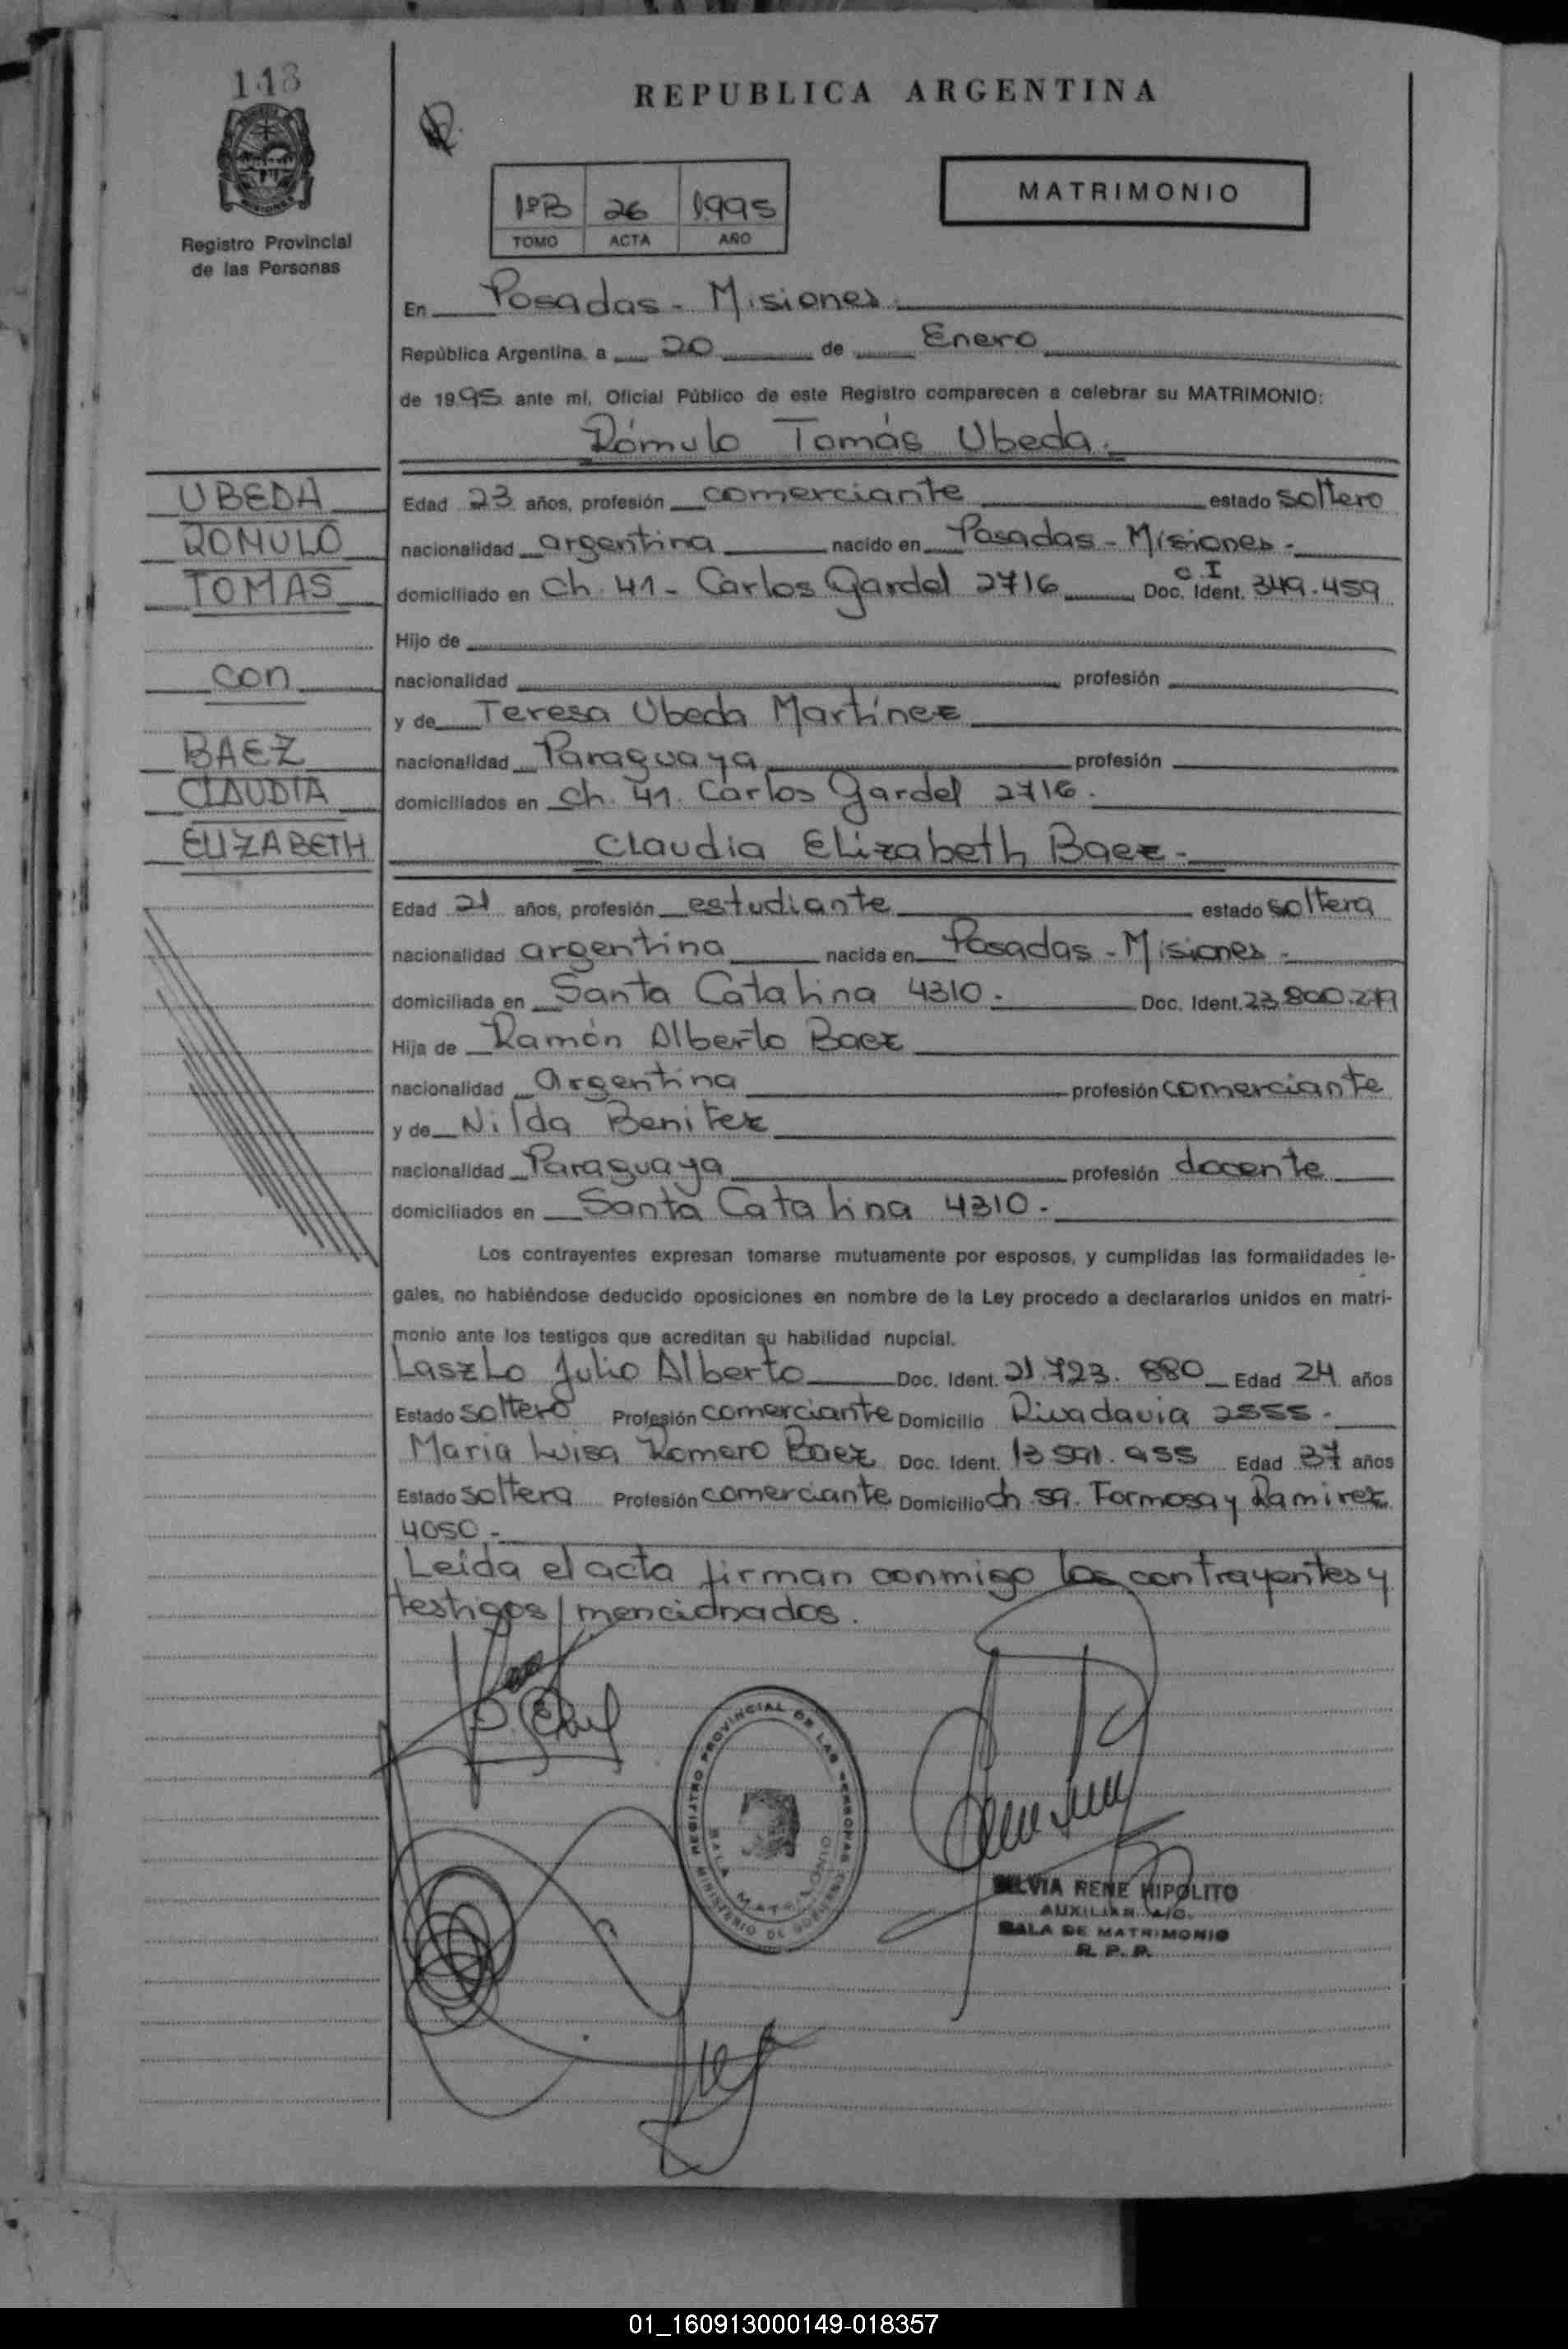 113
REPUBLICA ARGENTINA
MATRIMONIO
1ºB 26 1995
TOMO ACTA AÑO
MISIONES
Registro Provincial
de las Personas
En Posadas - Misiones
República Argentina, a 20 de Enero
de 1995 ante mí, Oficial Público de este Registro comparecen a celebrar su MATRIMONIO:
Rómulo Tomás Ubeda.
UBEDA
ROMULO
TOMAS
con
BAEZ
CLAUDIA
ELIZABETH
Edad 23 años, profesión comerciante estado soltero
nacionalidad argentina nacido en Posadas - Misiones -
domiciliado en Ch. 41 - Carlos Gardel 2716 Doc. Ident. C.I 349.459
Hijo de
nacionalidad profesión
y de Teresa Ubeda Martínez
nacionalidad Paraguaya profesión
domiciliados en Ch. 41. Carlos Gardel 2716.
Claudia Elizabeth Baez -
Edad 21 años, profesión estudiante estado soltera
nacionalidad argentina nacida en Posadas - Misiones -
domiciliada en Santa Catalina 4310. Doc. Ident. 23.800.279
Hija de Ramón Alberto Baez
nacionalidad Argentina profesión comerciante
y de Nilda Benitez
nacionalidad Paraguaya profesión docente
domiciliados en Santa Catalina 4310.
Los contrayentes expresan tomarse mutuamente por esposos, y cumplidas las formalidades le-
gales, no habiéndose deducido oposiciones en nombre de la Ley procedo a declararlos unidos en matri-
monio ante los testigos que acreditan su habilidad nupcial.
Laszlo Julio Alberto Doc. Ident. 21.723.880 Edad 24 años
Estado soltero Profesión comerciante Domicilio Rivadavia 2555.
Maria Luisa Romero Baez Doc. Ident. 13 591.955 Edad 37 años
Estado soltera Profesión comerciante Domicilio ch 59. Formosa y Ramirez
4050 -
Leída el acta firman conmigo los contrayentes y
testigos mencionados.
REGISTRO PROVINCIAL DE LAS PERSONAS
SALA MATRIMONIO
MINISTERIO DE GOBIERNO
SILVIA RENE HIPOLITO
AUXILIAR
SALA DE MATRIMONIO
R. P. P.
01_160913000149-018357